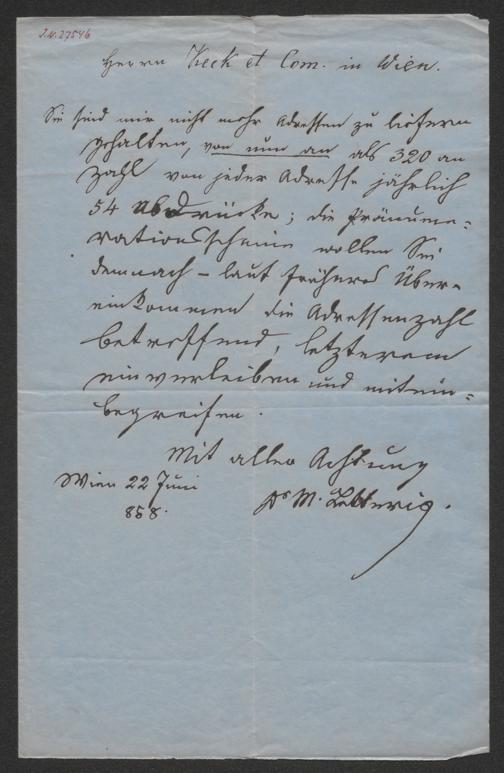 J.N. 27546
Herrn Keck et Com. in Wien.
Sie sind mir nicht mehr Adressen zu liefern
gehalten, von nun an als 320 an
Zahl von jeder Adresse jährlich
54 Abdrücke; die Pränume=
rationsscheine wollen Sie
demnach – laut früheres Über=
einkommen die Adressenzahl
betreffend, letzterem
einverleiben und mitein=
begreifen.
Mit aller Achtung
Wien 22 Juni
858.
Dr M.